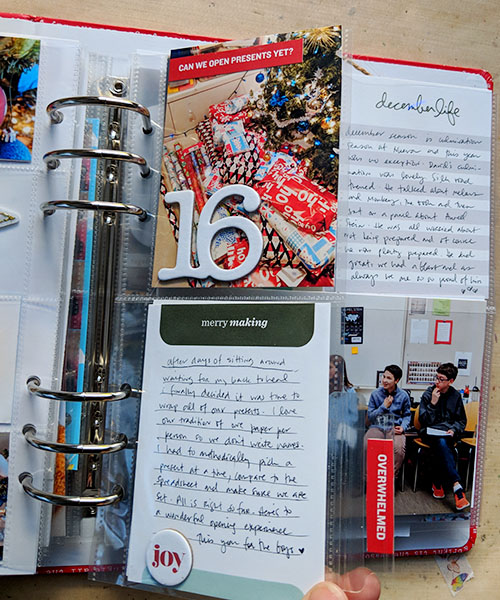 CAN WE OPEN PRESENTS YET?
16
december life
december season is culmination
season at Nueva and this year
was no exception. David's culmi-
nation was lovely. Silk road
themed. He talked about
and Monkey.
but on a panel about
how. He was all worried about
not being prepared and of course
he was plenty prepared. He did
great. We had a blast and as
always we are so proud of him
merry making
after days of sitting around
waiting for my back to heal
I finally decided it was time to
wrap all of our presents. I love
our tradition of one paper per
person so we don't write names.
I had to methodically pick a
present at a time, compare to the
spreadsheet and make sure we are
set. All is right so far. Here's to
a wonderful opening experience
this year for the boys ♥
joy
OVERWHELMED